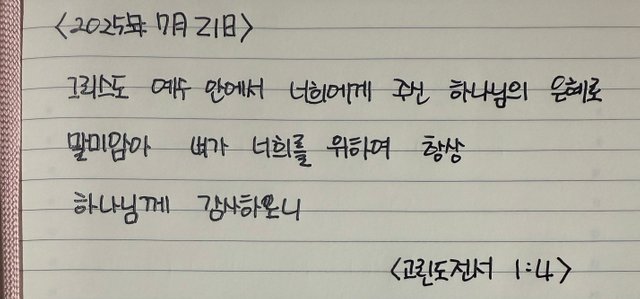 <2025年 7月 21日>
그리스도 예수 안에서 너희에게 주신 하나님의 은혜로
말미암아 내가 너희를 위하여 항상
하나님께 감사하오니
<고린도전서 1:4>